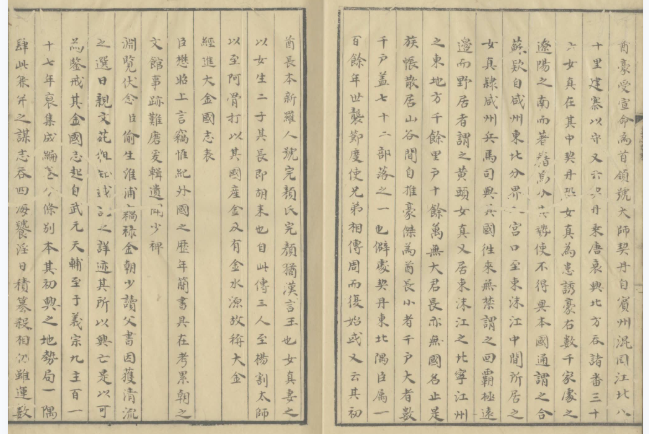 酋豪受宣命為首領號大師契丹自賓州混同江北八
十里建寨以守又云契丹東唐衰興北方吞諸番三十
六女真在其中契丹恐女真為患誘豪右數千家處之
遼陽之南而著籍焉分其勢使不得與本國通謂之合
蘇欵自咸州東北分界入宮口至東沫江中間所居之
女真隸咸州兵馬司與其國往來無禁謂之回霸極遠
邊而野居者謂之黃頭女真又居東沫江之北寧江州
之東地方千餘里户十餘萬無大君長亦無國名止是
族帳散居山谷間自推豪傑為酋長小者千户大者數
千户蓋七十二部落之一也僻處契丹東北隅臣屬一
百餘年世襲節度使兄弟相傳周而復始或又云其初
酋長本新羅人號完顏氏完顏猶漢言王也女真妻之
以女生二子其長即胡來也自此傳三人至楊割太師
以至阿骨打以其國產金及有金水源故稱大金
經進大金國志表
臣懋昭上言竊惟紀外國之歷年簡書具在考累朝之
文館事跡難磨爰輯遺聞少裨
淵覽伏念臣偷生淮浦竊祿金朝少讀父書因獲清流
之選日親文苑粗知載記之詳迹其所以興亡是以可
為鑒戒其金國志起自武元天輔至于義宗九主百一
十七年裒集成編各分條別本其初興之地勢局一隅
肆此豕牙之謀志吞四海饕淫日積篡殺相仍雖運數